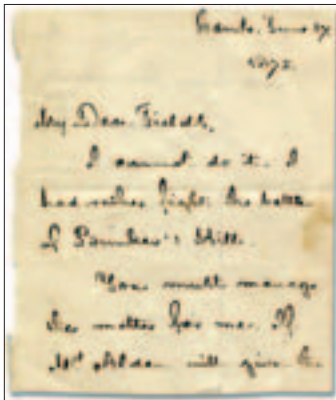 June 27
1872.
My Dear Fields,
I cannot do it. I
had rather fight the battle
of Bunker's Hill.
You must manage
the matter for me. If
Mr. will give the